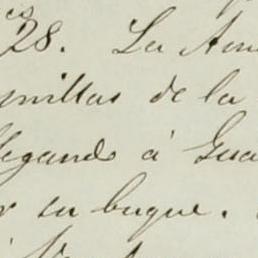 28. La Am
millas de la
llegando á Gua
r su buque.